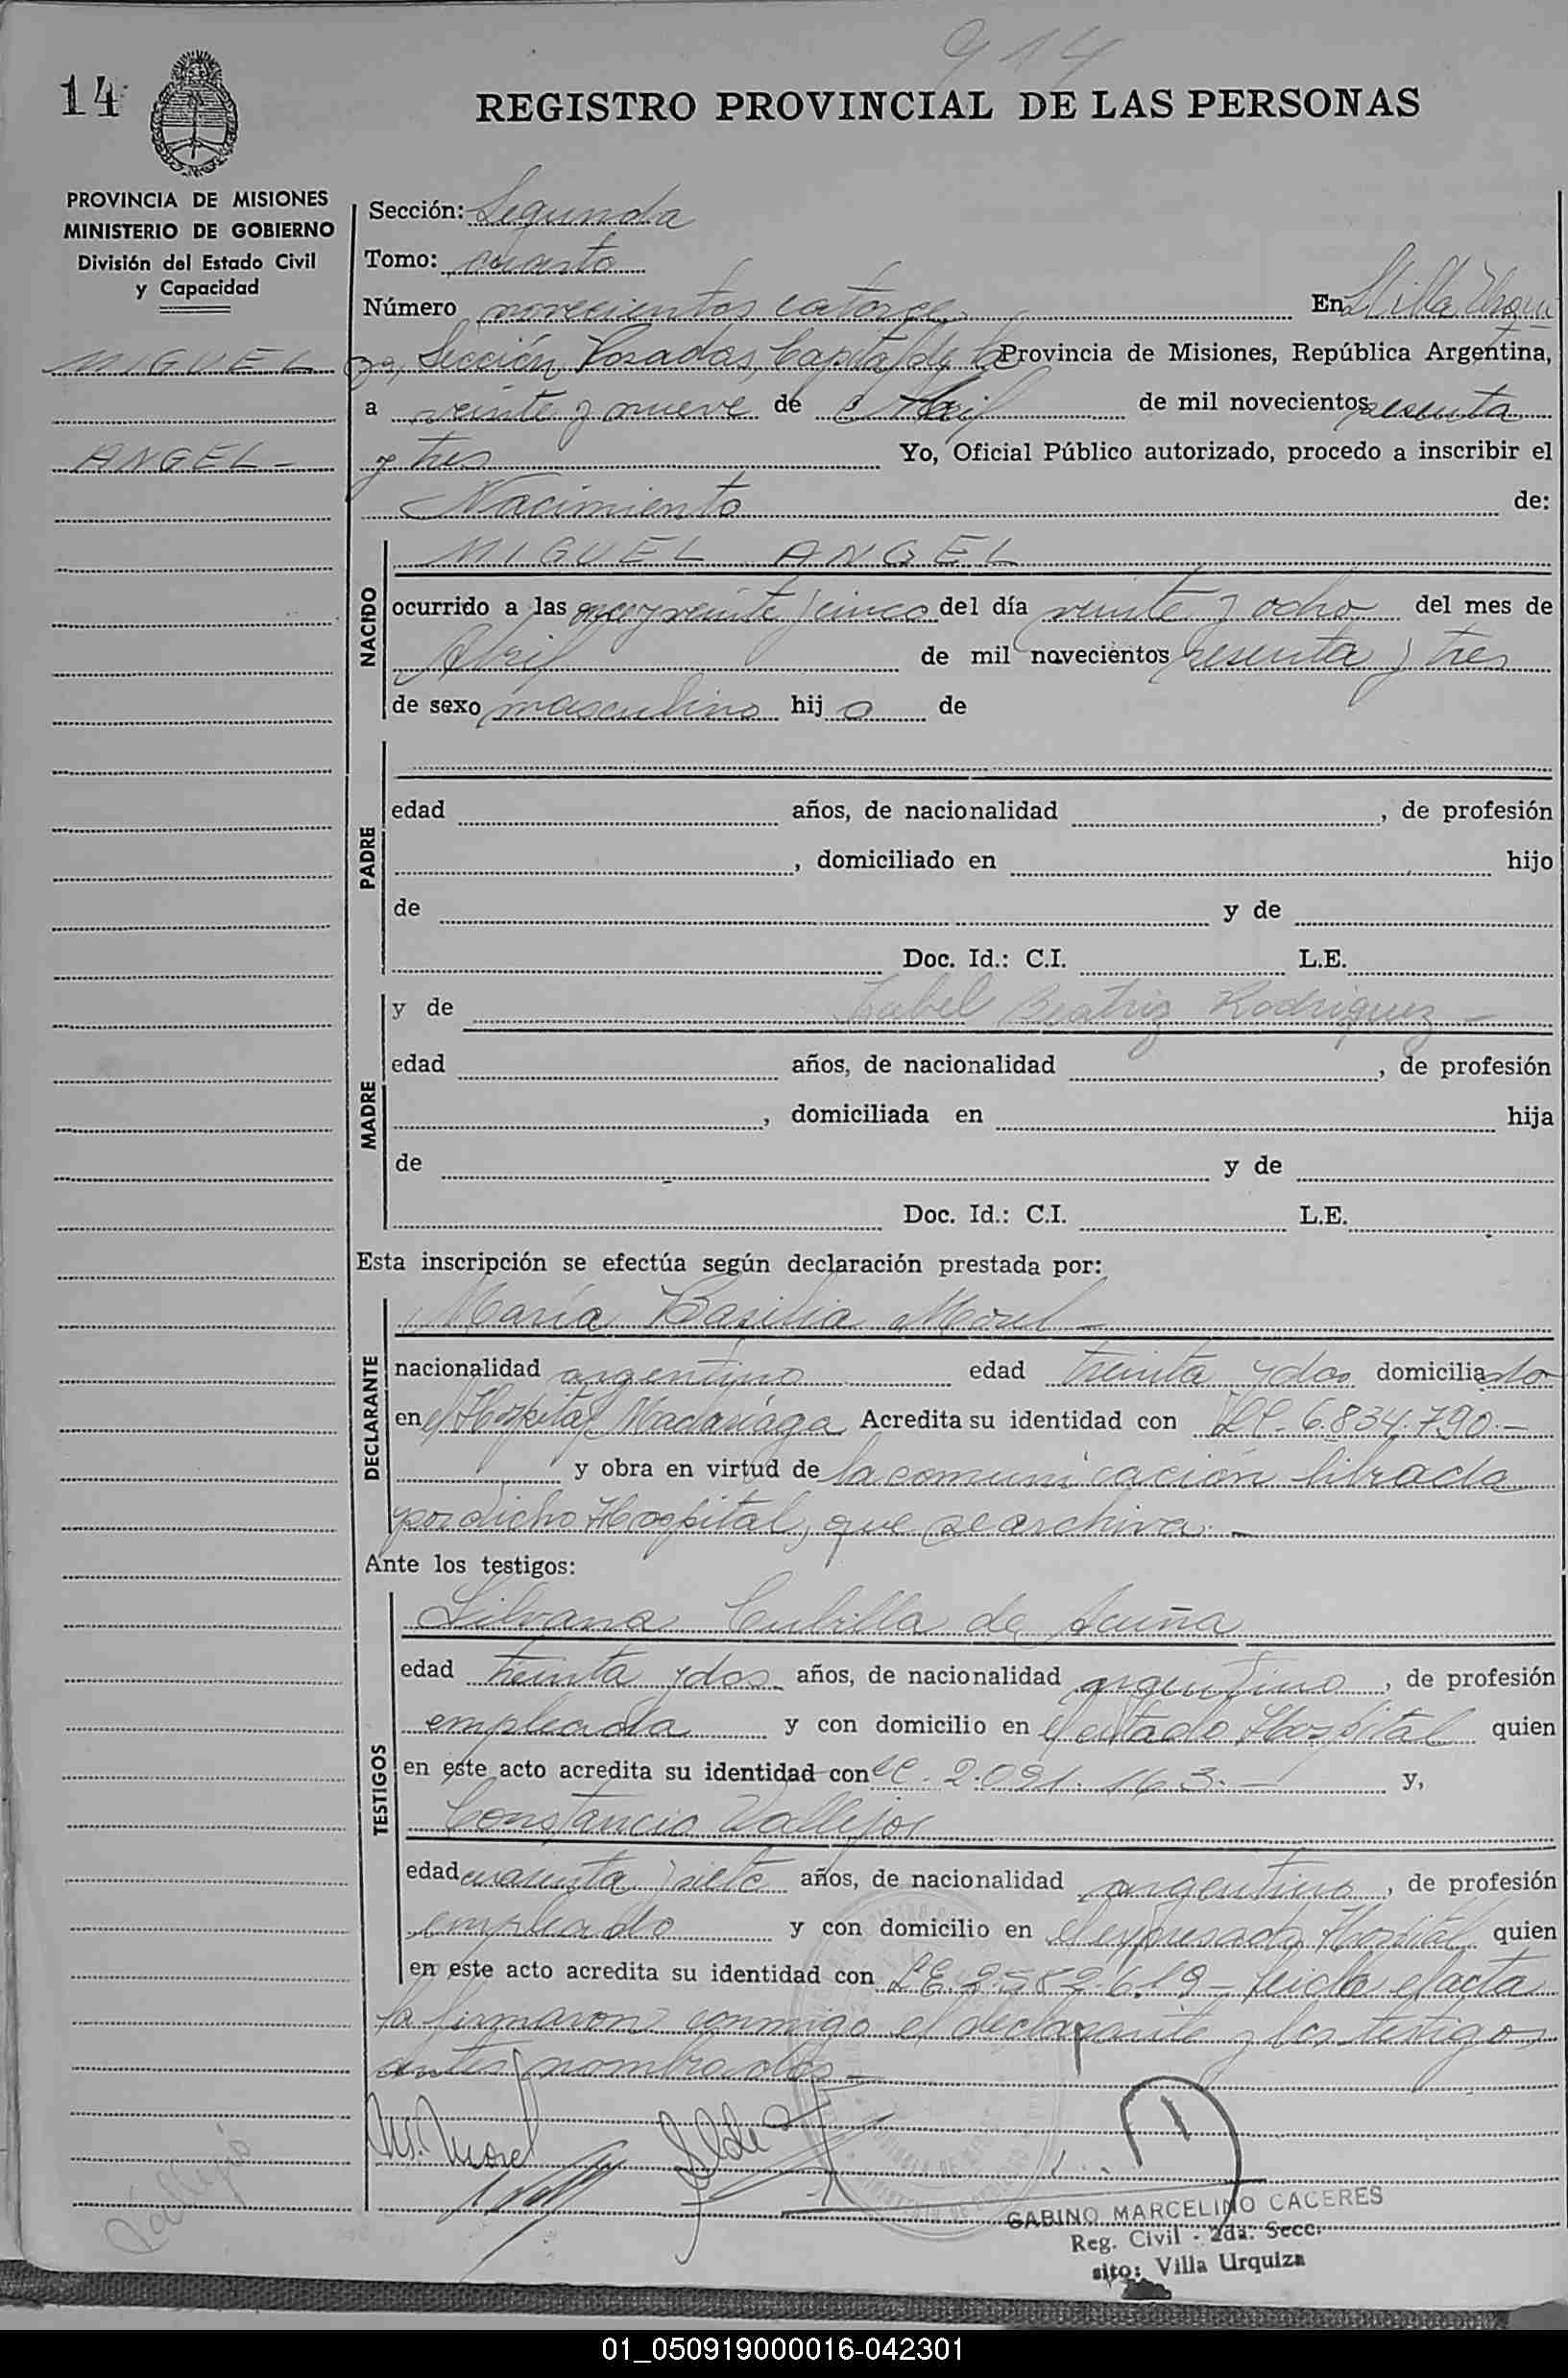 914
14
REGISTRO PROVINCIAL DE LAS PERSONAS
PROVINCIA DE MISIONES
MINISTERIO DE GOBIERNO
División del Estado Civil
y Capacidad
Sección: Segunda
Tomo: cuarto
Número novecientos catorce En Villa Urqui
MIGUEL
za, Sección Posadas, Capital de la Provincia de Misiones, República Argentina,
a veinte y nueve de Abril de mil novecientos sesenta
ANGEL -
y tres Yo, Oficial Público autorizado, procedo a inscribir el
Nacimiento de:
NACIDO
MIGUEL ANGEL
ocurrido a las once y veinte y cinco del día veinte y ocho del mes de
Abril de mil novecientos sesenta y tres
de sexo masculino hijo de
PADRE
edad años, de nacionalidad , de profesión
, domiciliado en hijo
de y de
Doc. Id.: C.I. L.E.
MADRE
y de Isabel Beatriz Rodriguez -
edad años, de nacionalidad , de profesión
, domiciliada en hija
de y de
Doc. Id.: C.I. L.E.
Esta inscripción se efectúa según declaración prestada por:
DECLARANTE
María Basilia Morel -
nacionalidad argentino edad treinta y dos domiciliado
en el Hospital Madariaga Acredita su identidad con LC. 6.834.790.-
y obra en virtud de la comunicación librada
por dicho Hospital, que se archiva. -
Ante los testigos:
TESTIGOS
Silvana Cubilla de Acuña
edad treinta y dos años, de nacionalidad argentino, de profesión
empleada y con domicilio en el citado Hospital quien
en este acto acredita su identidad con LC. 2.091.143.- y,
Constancio Vallejos
edad cuarenta y siete años, de nacionalidad argentino, de profesión
empleado y con domicilio en el expresado Hospital quien
en este acto acredita su identidad con LE. 2.582.619 - Leida el acta
la firmaron conmigo el declarante y los testigos
antes nombrados -
M. Morel
Vallejo
GABINO MARCELINO CACERES
Reg. Civil - 2da. Secc.
sito: Villa Urquiza
01_050919000016-042301